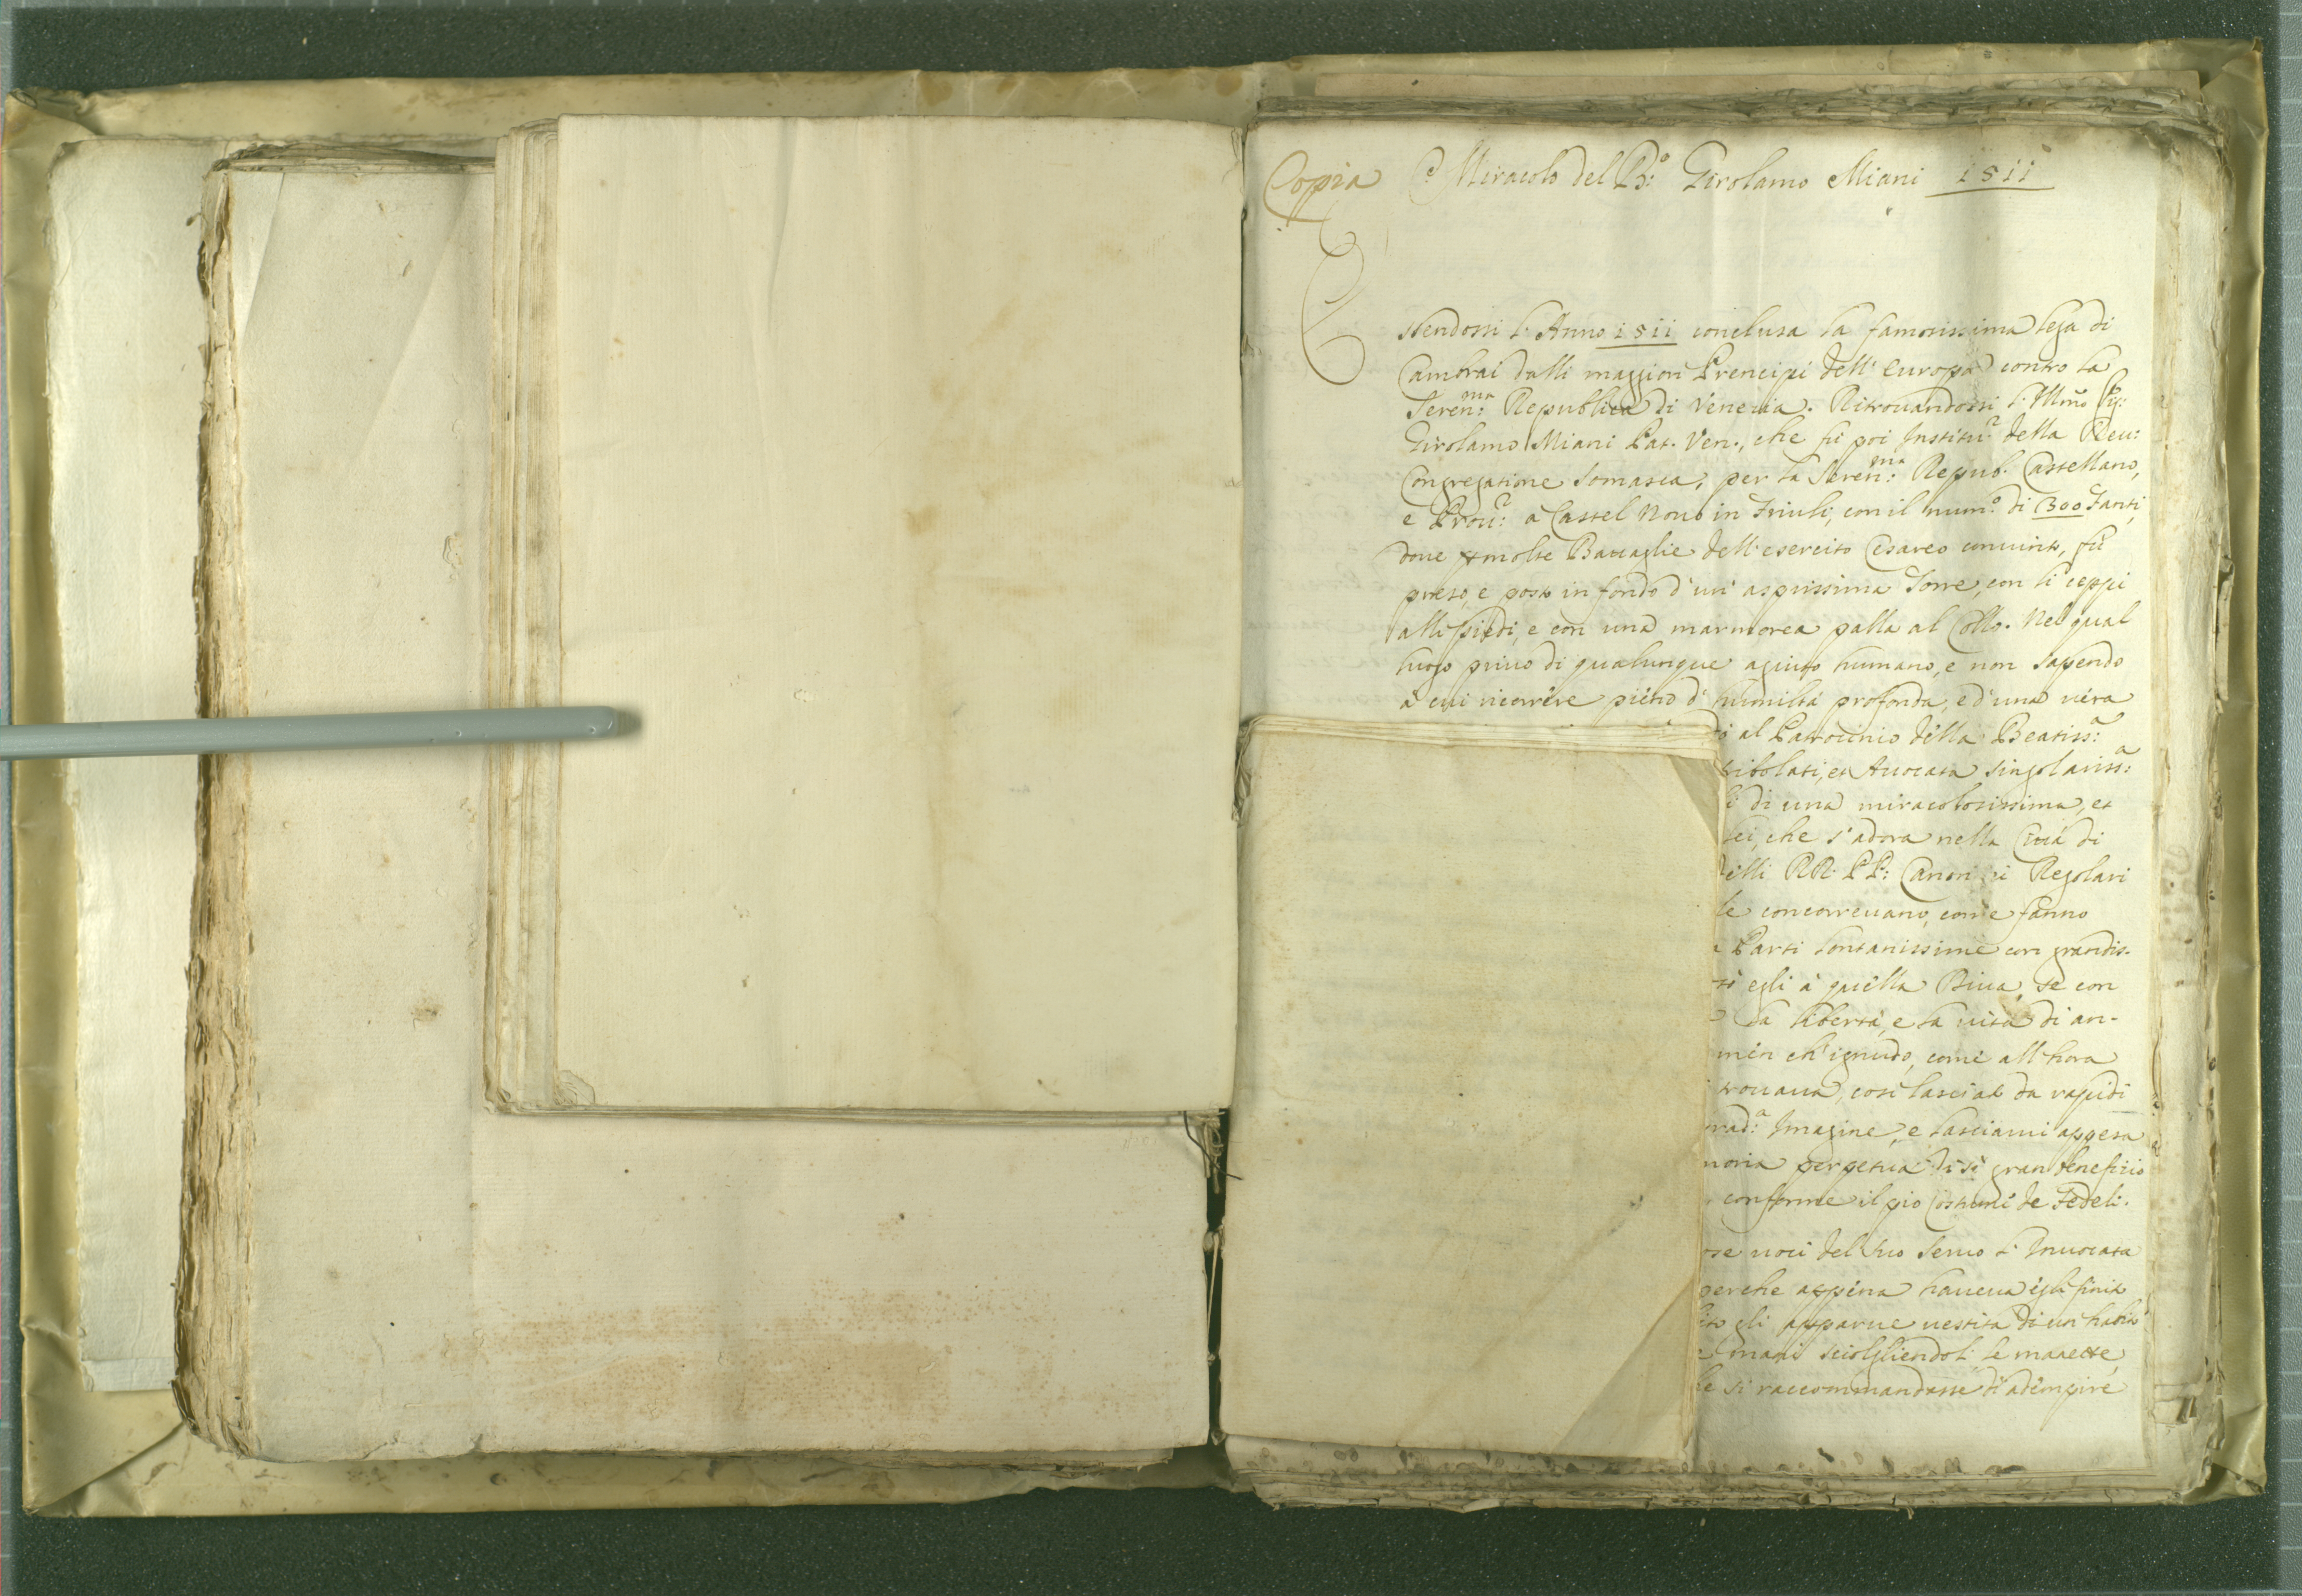 Copia Miracolo del B.º Girolamo Miani 1511
Essendossi l'Anno 1511 conclusa la famosissima lega di
Cambrai dalli maggiori Prencipi dell'Europa contro la
Seren.ma Republica di Venetia. Ritrouandossi l'Illmo Sig:
Girolamo Miani Pat. Ven., che fù poi Institu.r della Reu:
Congregatione Somasca, per la Seren.ma Repub. Castellano,
e Prou.r a Castel Nouo in Friuli, con il num.o di 300 Fanti,
doue molte Battaglie dell'esercito Cesareo conuinto, fù
preso, e posto in fondo d'un' asprissima Torre, con li ceppi
alli piedi, e con una marmorea palla al Collo. Nel qual
luogo priuo di qualunque agiuto humano, e non sapendo
à cui ricorrere pieno d'humiltà profonda, e d'una uera
al Patrocinio della Beatiss.a
tribolati, et Auocata singolariss.a
di una miracolosissima, et
lei, che s'adora nella Città di
delli RR. PP: Canonici Regolari
concorreuano, come fanno
Parti lontanissime con grandis-
egli à quella Diua, se con
la libertà, e la uita di an-
men ch'ignudo, come all'hora
trouaua, così lasciato da rapidi
Imagine, e lasciarui appesa
moria perpetua di si gran beneficio
conforme il pio Costume de Fedeli.
uoci del suo Seruo l'Inuocata
perche appena haueua egli finito
gli apparue uestita di un habito
mani sciolgliendoli le manette,
si raccommandasse di adempire